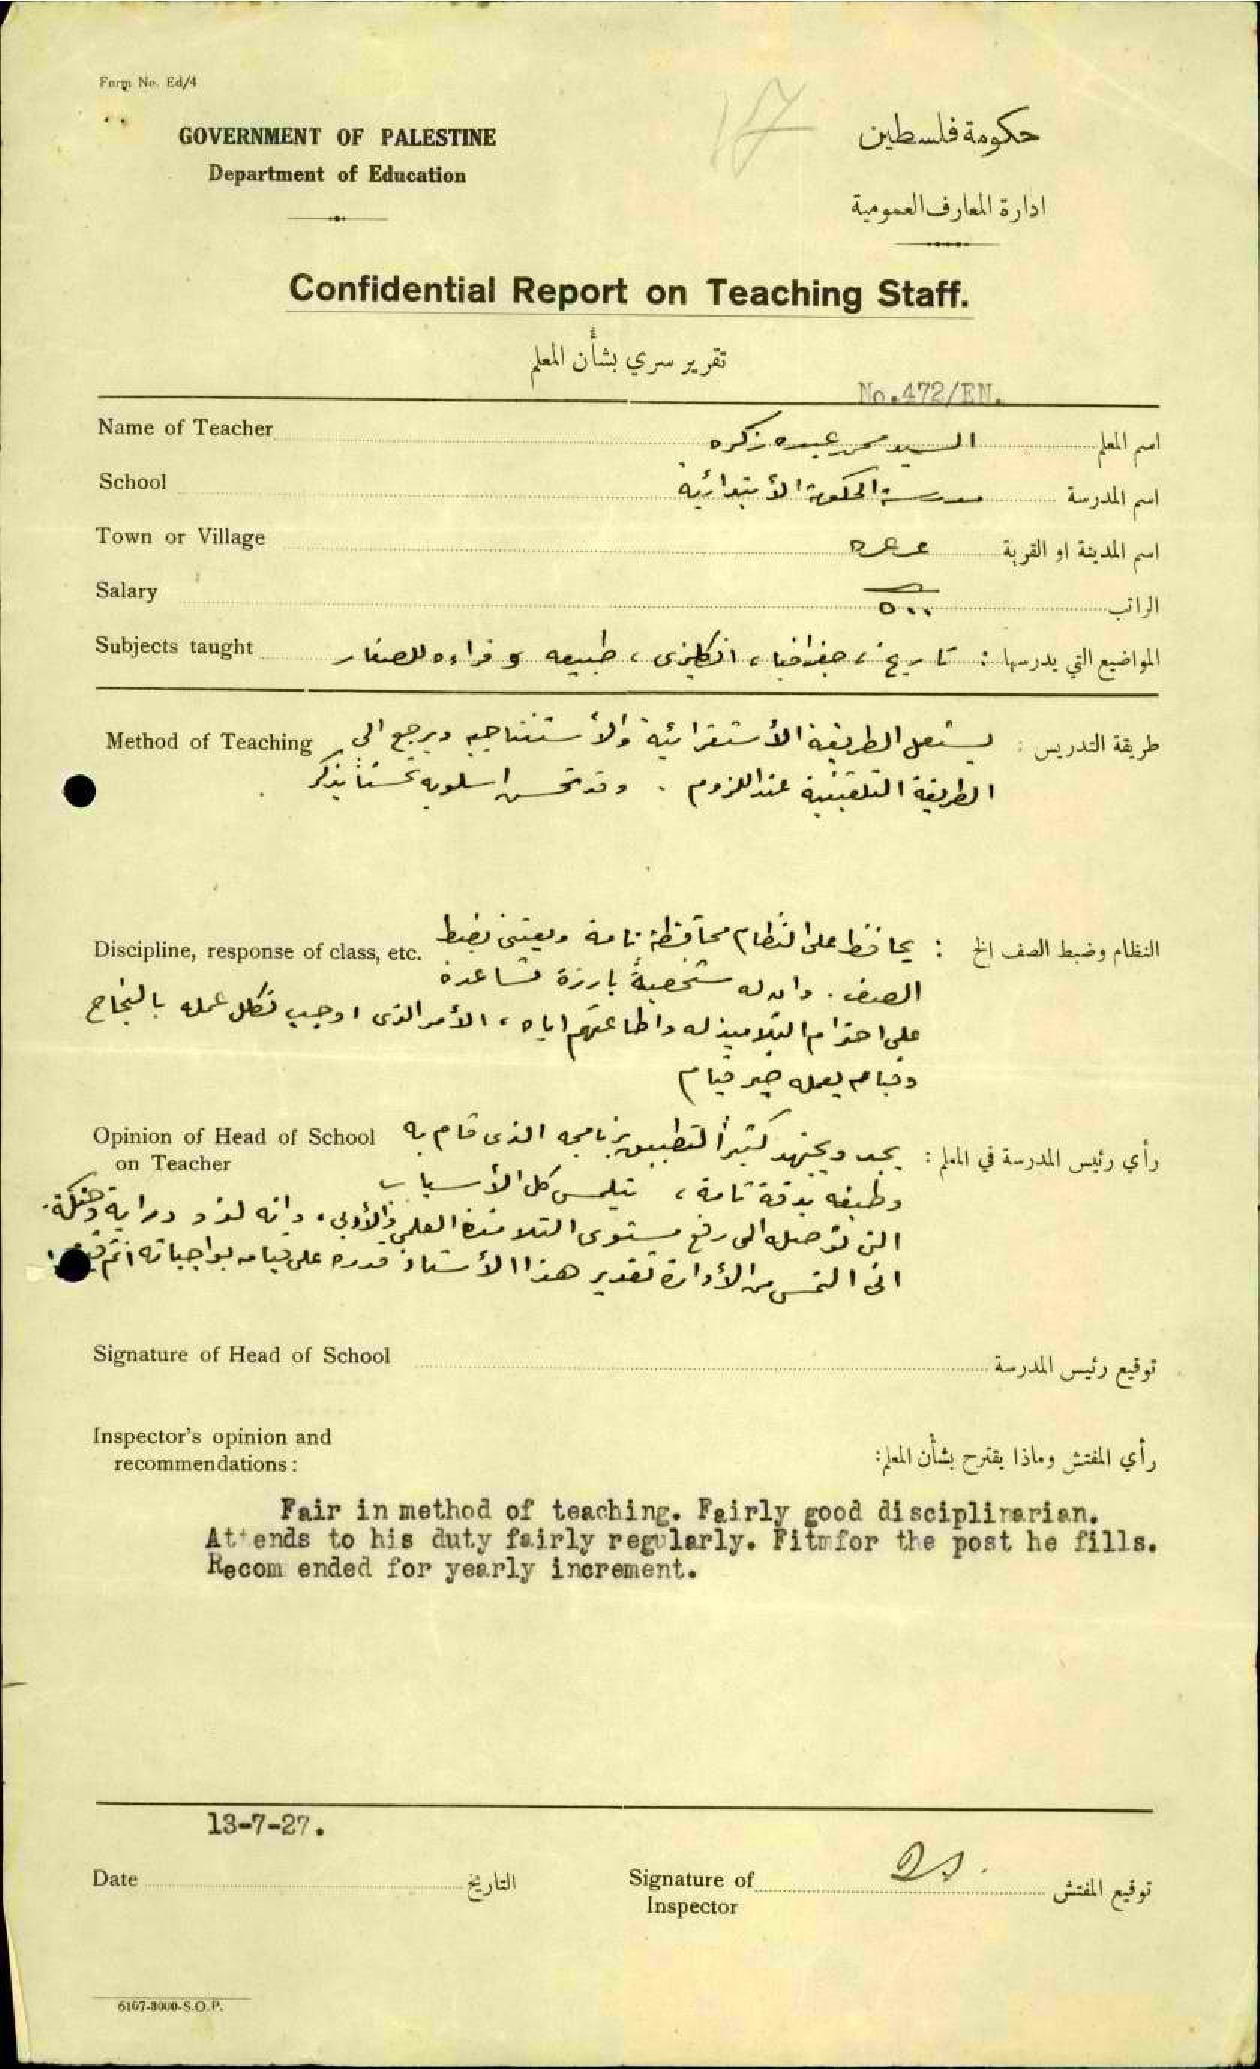 Form No. Ed/4
17
GOVERNMENT OF PALESTINE
Department of Education
حكومة فلسطين
ادارة المعارف العمومية
Confidential Report on Teaching Staff.
تقرير سري بشأن المعلم
No.472/EN.
Name of Teacher السيد محمد عبده زكره اسم المعلم
School مدرسة الحكومة الأبتدائية اسم المدرسة
Town or Village عرعره اسم المدينة او القرية
Salary ٥٠٠ الراتب
Subjects taught تاريخ، جغرافيا، انكليزي، طبيعه و قراءه للصغار المواضيع التي يدرسها :
Method of Teaching يستعمل الطريقة الأستقرائية والأستنتاجيه ويرجع الى طريقة التدريس :
الطريقة التلقينية عند اللزوم . وقد تحسن اسلوبه تحسناً يذكر
Discipline, response of class, etc. يحافظ على النظام محافظة تامة ويعتني بضبط النظام وضبط الصف الخ :
الصف . وان له شخصية بارزة مساعدة
على احترام التلاميذ له واطاعتهم اياه ، الأمر الذي اوجب تكلل عمله بالنجاح
وقيامه بعمله خير قيام
Opinion of Head of School يجد ويجتهد كثيراً لتطبيق برنامجه الذي قام به رأي رئيس المدرسة في المعلم :
on Teacher
وظيفه بدقة تامة ، يتلمس كل الأسباب
التي توصله الى رفع مستوى التلامذة العلمي والأدبي . وانه لذو دراية وحنكة .
اني التمس من الأدارة تقدير هذا الأستاذ قدره على قيامه بواجباته اتم
Signature of Head of School توقيع رئيس المدرسة
Inspector's opinion and
recommendations :
رأي المفتش وماذا يقترح بشأن المعلم:
Fair in method of teaching. Fairly good disciplinarian.
Attends to his duty fairly regularly. Fitmfor the post he fills.
Recom ended for yearly increment.
13-7-27.
Date التاريخ
Signature of
Inspector
توقيع المفتش
6167-8000-S.O.P.